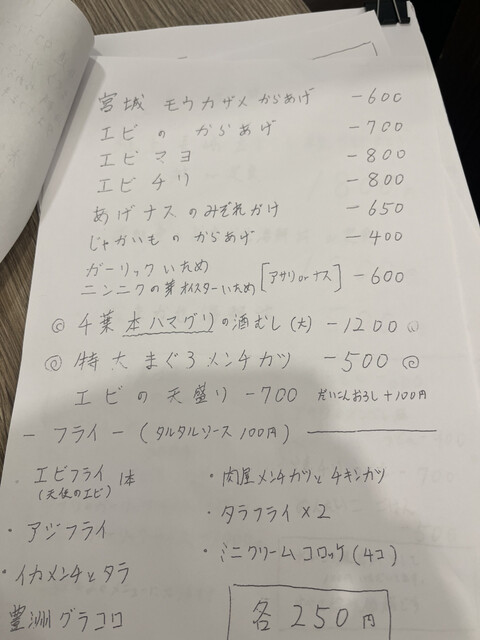 宮城 モウカザメ からあげ -600
エビ の からあげ -700
エビ マヨ -800
エビ チリ -800
あげナス のみぞれかけ -650
じゃがいも の からあげ -400
ガーリックいため
ニンニクの芽オイスターいため [アサリorナス] -600
◎ 千葉 本ハマグリの酒むし (大) -1200 ◎
◎ 特大 まぐろ メンチカツ -500 ◎
エビ の 天盛り -700 だいこんおろし +100円
- フライ - (タルタルソース 100円)
エビフライ 1本
(天使のエビ)
・アジフライ
・イカメンチとタラ
豊洲 グラコロ
・肉屋メンチカツとチキンカツ
・タラフライ×2
・ミニクリームコロッケ(4コ)
各 250円